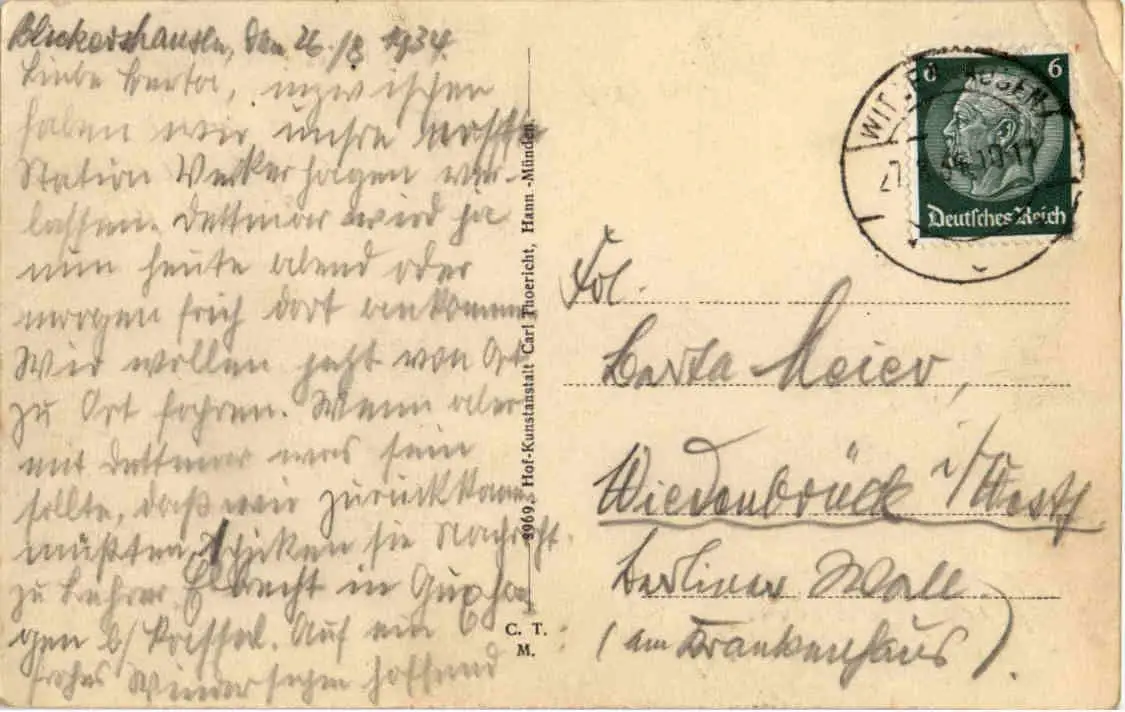 Blickershausen, den 26./8. 1934.
Liebe Berta, inzwischen
haben wir unsre
Station Veckerhagen ver-
lassen. Dettmar wird ja
nun heute abend oder
morgen früh dort ankommen.
Wir wollen jetzt von Ort
zu Ort fahren. Wenn aber
mit Dettmar was sein
sollte, daß wir zurückkommen
müßten, schicken sie Nachricht
zu Lehrer Elbrecht in Guxha-
gen b/ Kassel. Auf ein
frohes Wiedersehen hoffend
8969. Hof-Kunstanstalt Carl Thoericht, Hann.-Münden.
C. T.
M.
6 6
Deutsches Reich
Frl.
Berta Meier,
Wiedenbrück i/Westf
Berliner Wall
(am Krankenhaus).